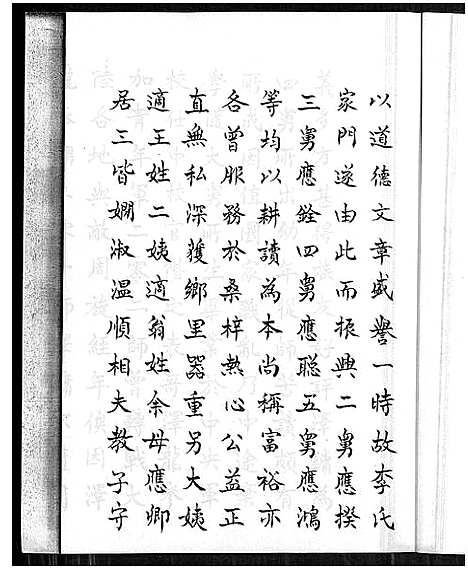 以道德文章盛譽一時故李氏
家門遂由此而振興二舅應揆
三舅應銓四舅應聰五舅應鴻
等均以耕讀為本尚稱富裕亦
各曾服務於桑梓熱心公益正
直無私深獲鄉里器重另大姨
適王姓二姨適翁姓余母應卿
居三皆嫻淑溫順相夫教子守